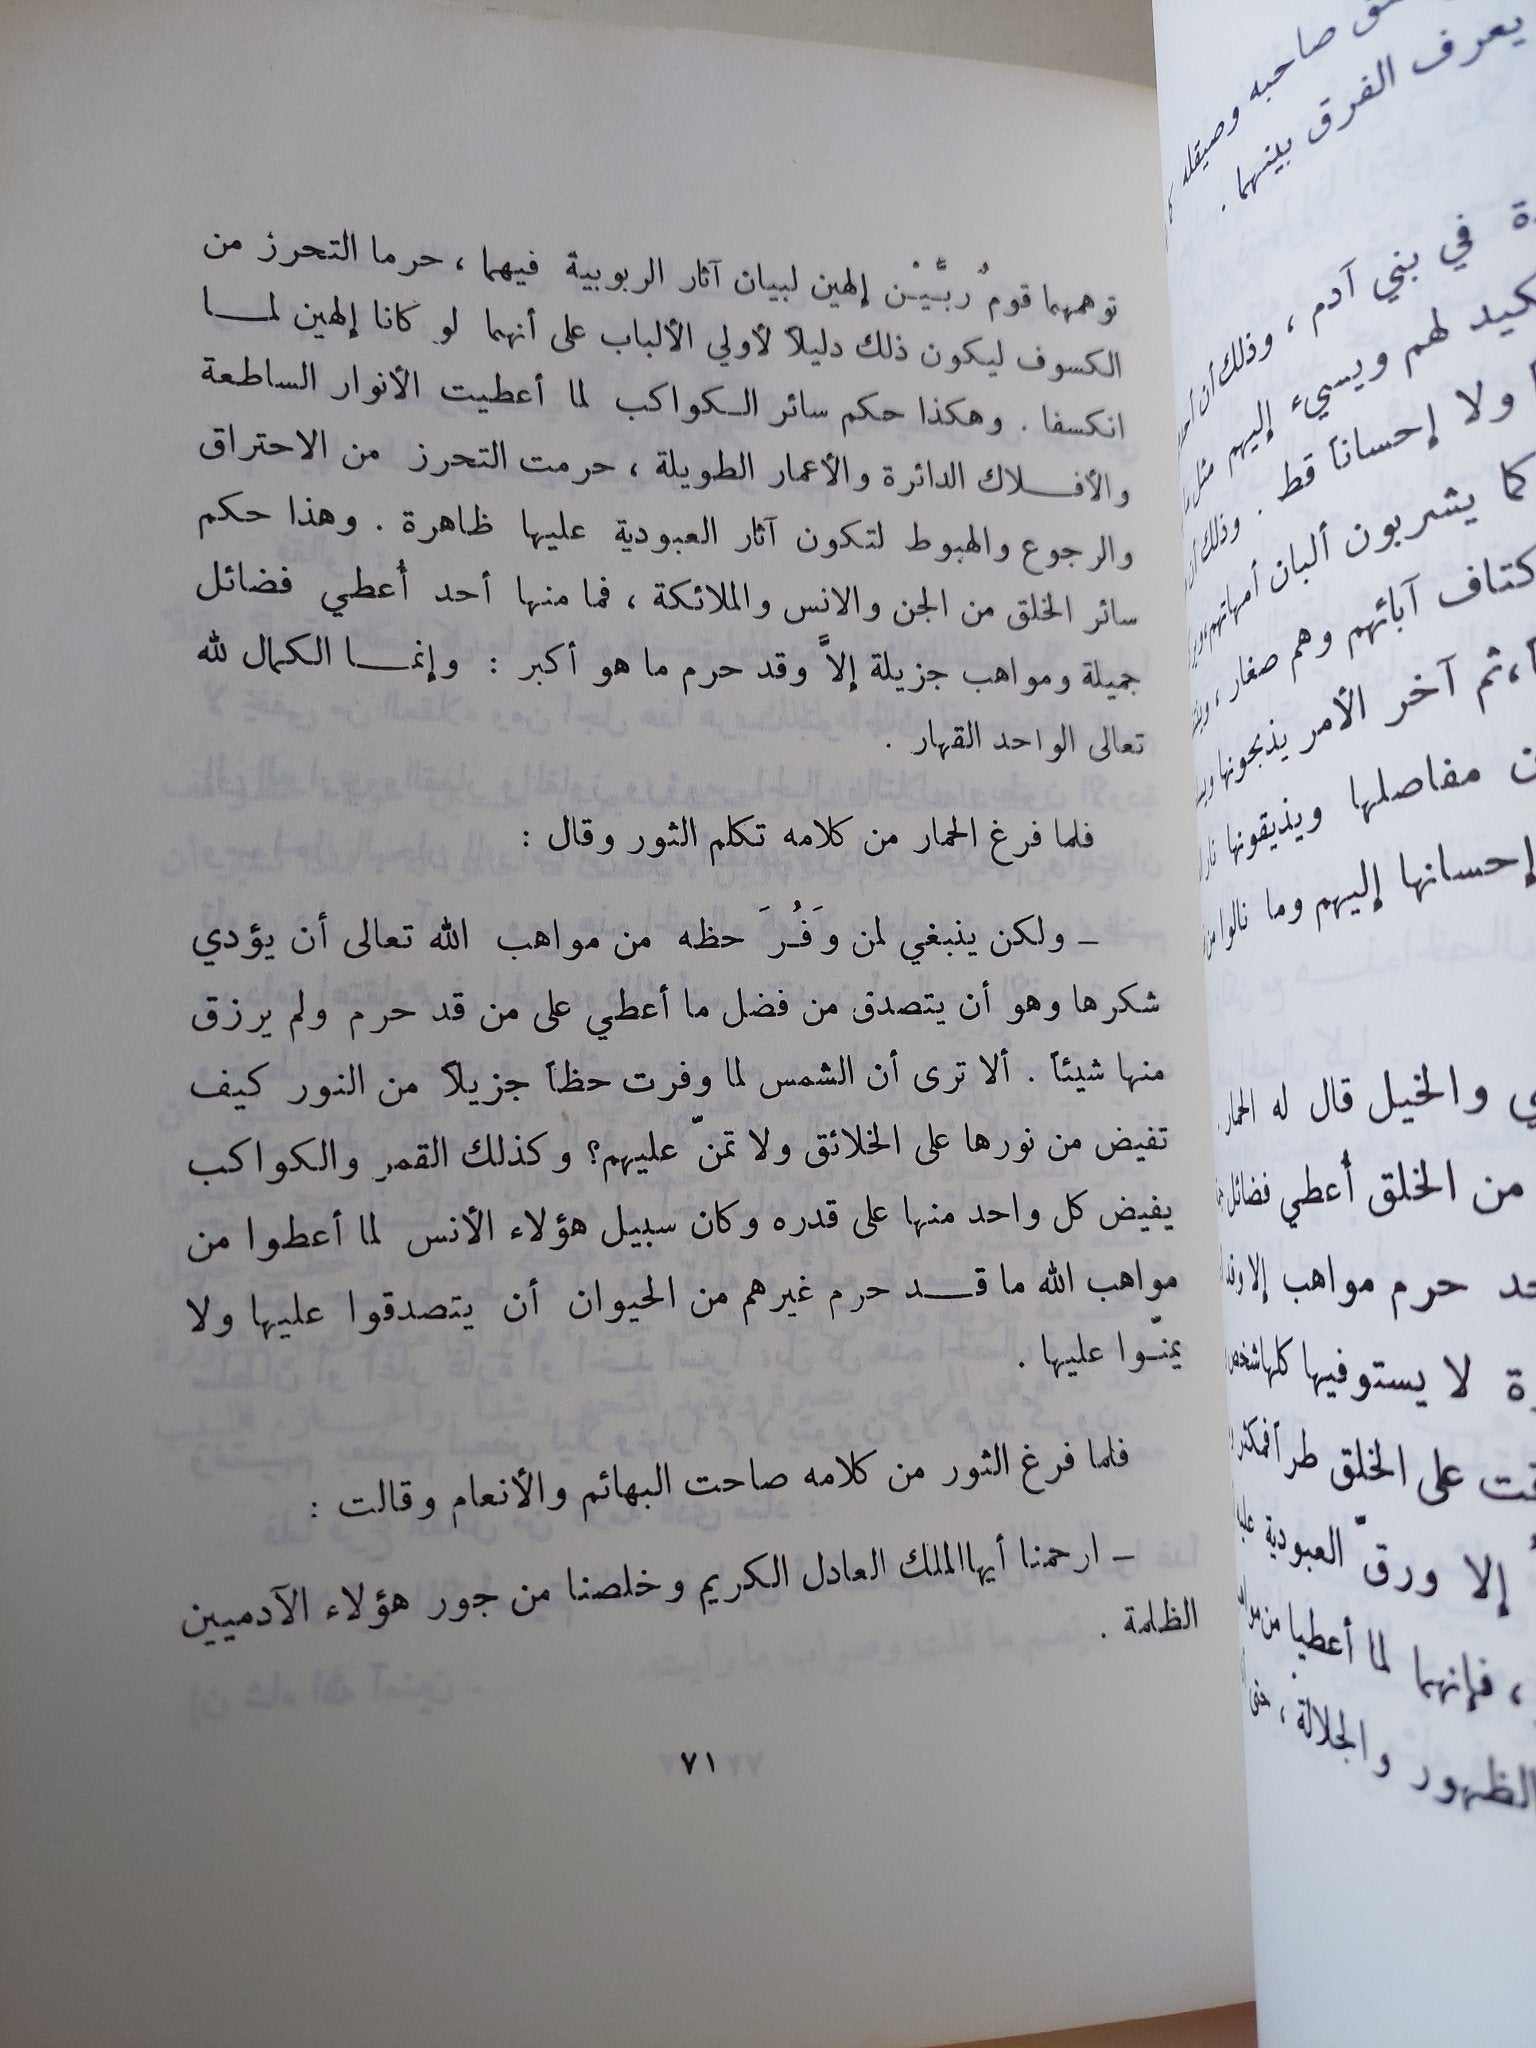 صاحبه وصيقله
يعرف الفرق بينهما .
في بني آدم ، وذلك أن
لهم ويسيء إليهم مثل
ولا إحساناً قط . وذلك
كما يشربون ألبان أمهاتهم
آبائهم وهم صغار ،
، ثم آخر الأمر يذبحونها
مفاصلها ويذيقونها
إحسانها إليهم وما نالوا من
والخيل قال له الحمار
من الخلق أُعطي فضائل
حرم مواهب إلا وقد
لا يستوفيها كلها شخص
على الخلق طراً
إلا ورقّ العبودية
، فإنهما لما أعطيا من
الظهور والجلالة ، حتى
توهمهما قومٌ ربَّيْن إلهين لبيان آثار الربوبية فيهما ، حرما التحرز من
الكسوف ليكون ذلك دليلاً لأولي الألباب على أنهما لو كانا إلهين لمـــا
انكسفا . وهكذا حكم سائر الـكواكب لما أعطيت الأنوار الساطعة
والأفـــلاك الدائرة والأعمار الطويلة ، حرمت التحرز من الاحتراق
والرجوع والهبوط لتكون آثار العبودية عليها ظاهرة . وهذا حكم
سائر الخلق من الجن والانس والملائكة ، فما منها أحد أُعطي فضائل
جميلة ومواهب جزيلة إلاَّ وقد حرم ما هو أكبر : وإنمـــا الكمال لله
تعالى الواحد القهار .
فلما فرغ الحمار من كلامه تكلم الثور وقال :
ـ ولكن ينبغي لمن وَفُرَ حظه من مواهب الله تعالى أن يؤدي
شكرها وهو أن يتصدق من فضل ما أعطي على من قد حرم ولم يرزق
منها شيئاً . ألا ترى أن الشمس لما وفرت حظاً جزيلاً من النور كيف
تفيض من نورها على الخلائق ولا تمنّ عليهم؟ وكذلك القمر والكواكب
يفيض كل واحد منها على قدره وكان سبيل هؤلاء الأنس لما أعطوا من
مواهب الله ما قـــد حرم غيرهم من الحيوان أن يتصدقوا عليها ولا
يمنّـوا عليها .
فلما فرغ الثور من كلامه صاحت البهائم والأنعام وقالت :
ـ ارحمنا أيهاالملك العادل الكريم وخلصنا من جور هؤلاء الآدميين
الظلمة .
٧١